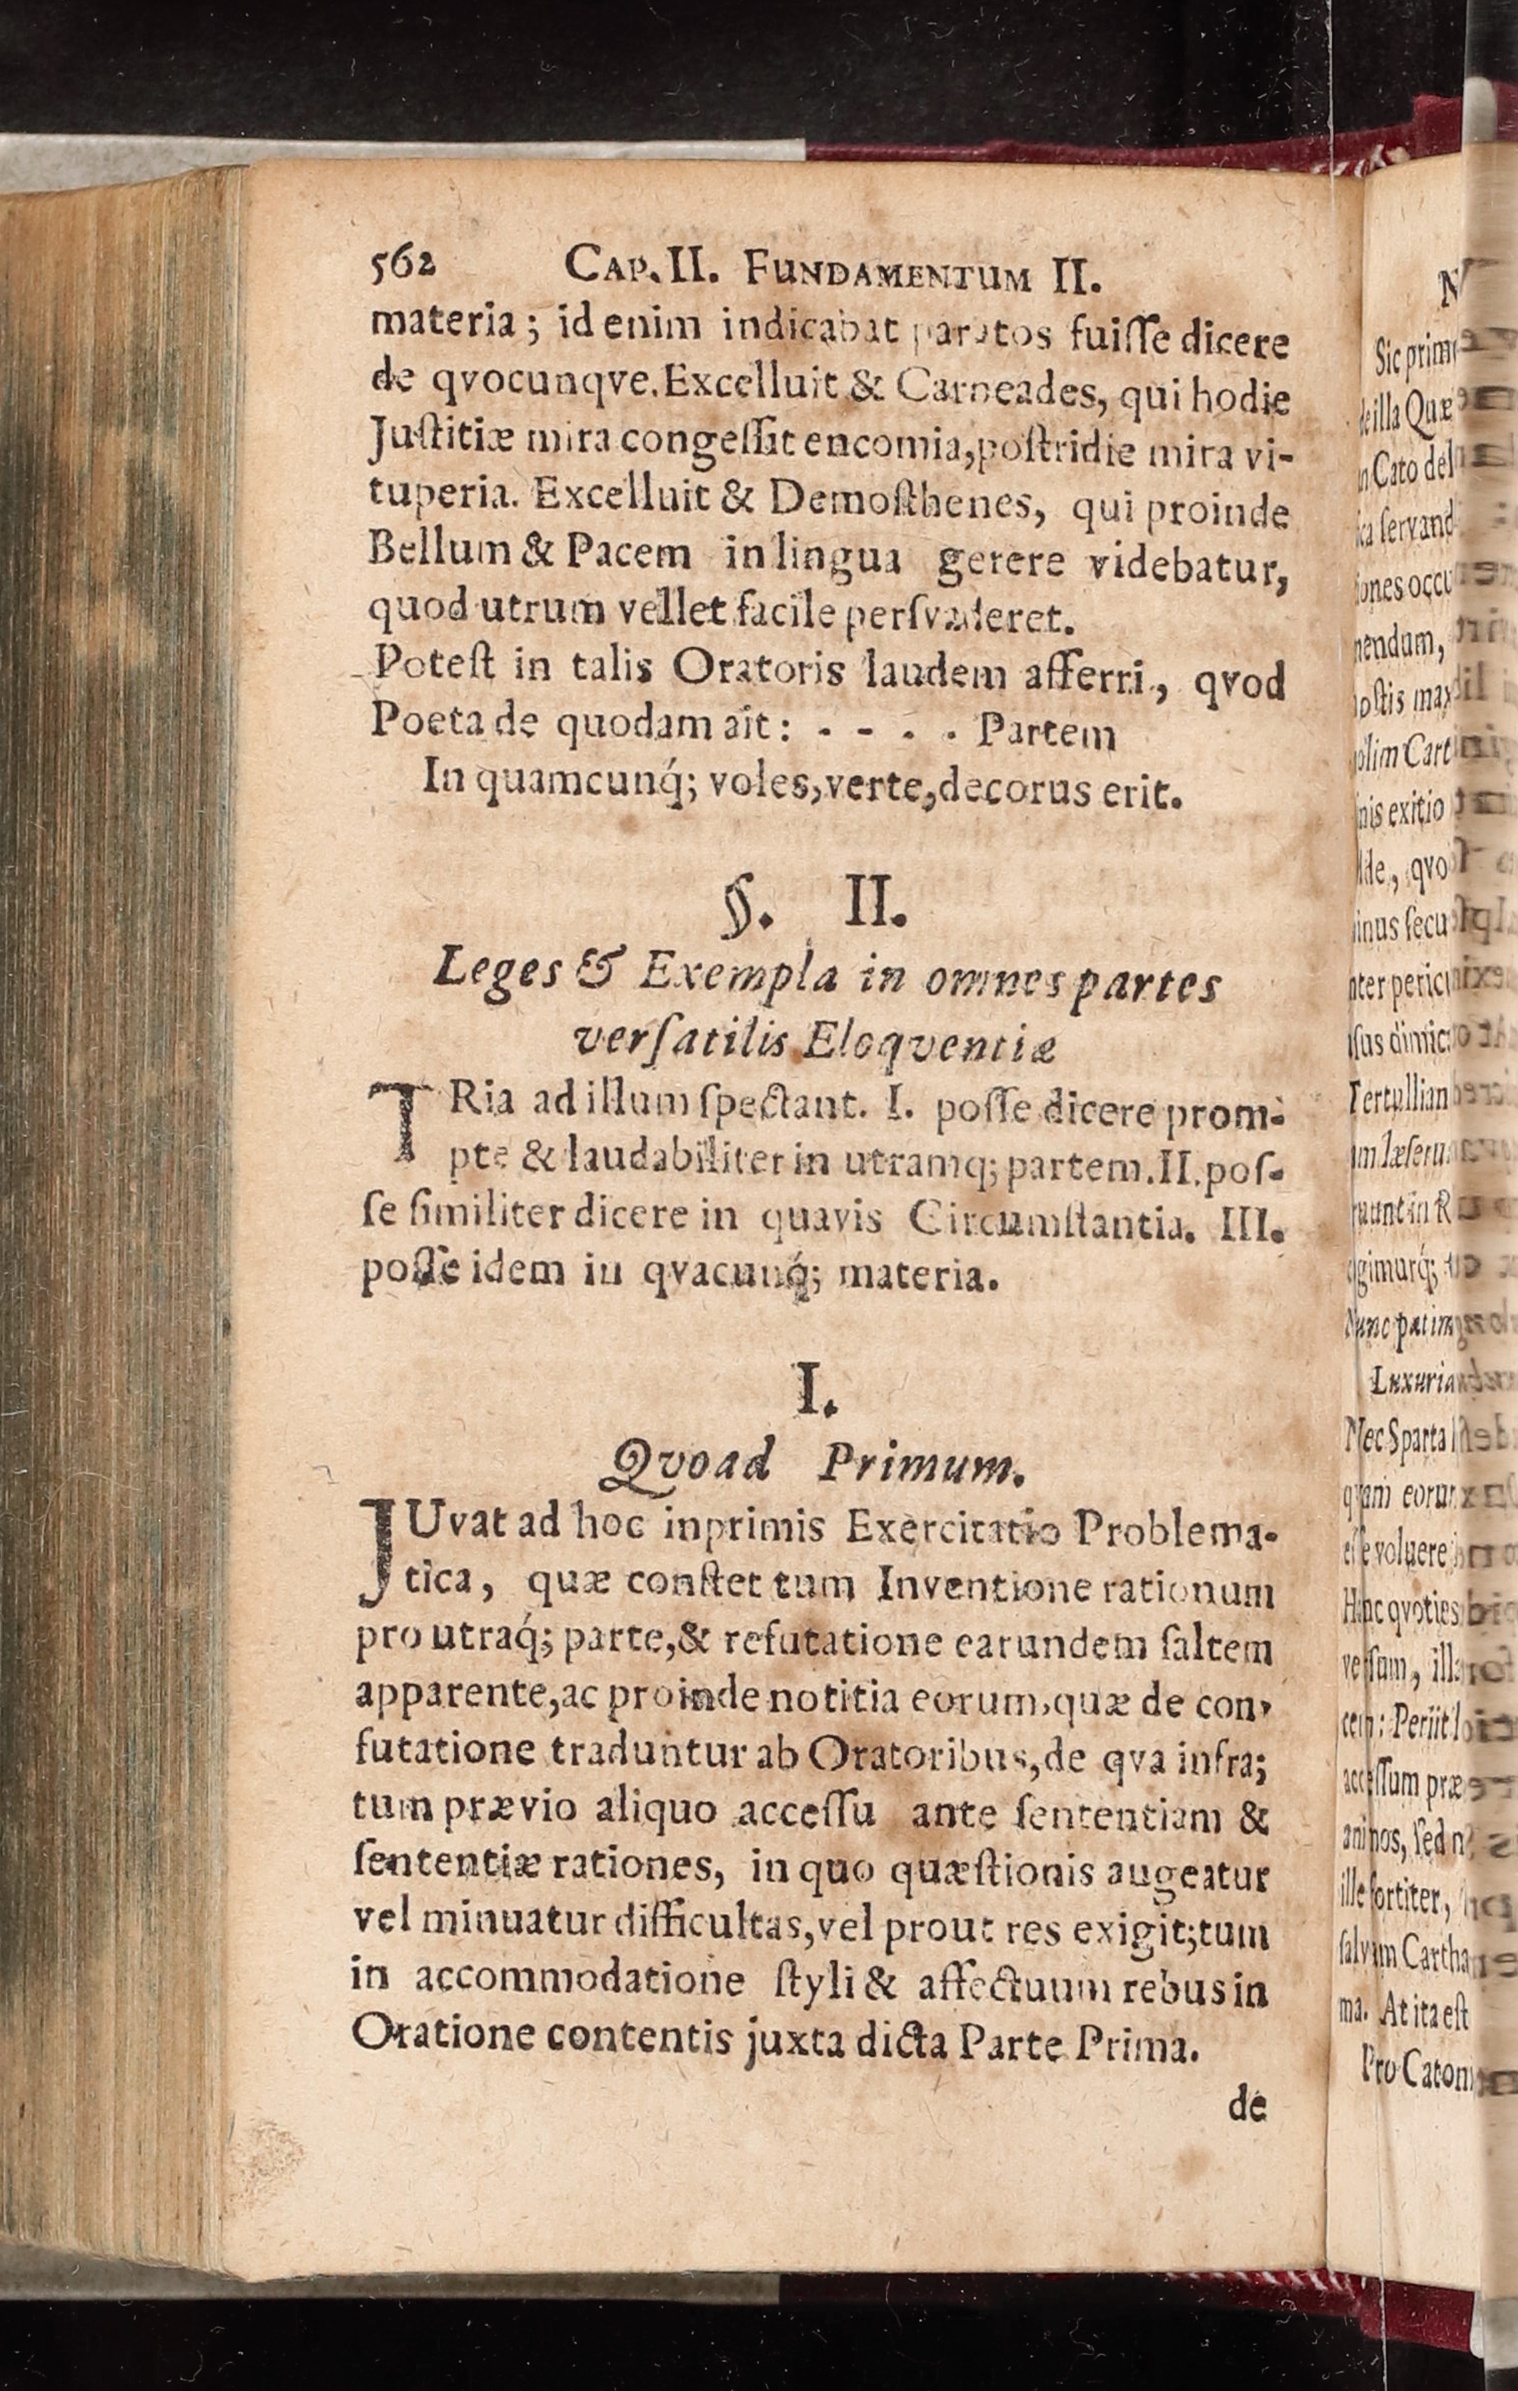 562 CAP. II. FUNDAMENTUM II.
materia; id enim indicabat paratos fuiſſe dicere
de qvocunqve. Excelluit & Carneades, qui hodie
Juſtitiæ mira congeſſit encomia, poſtridie mira vi-
tuperia. Excelluit & Demoſthenes, qui proinde
Bellum & Pacem in lingua gerere videbatur,
quod utrum vellet facile perſvaderet.
Poteſt in talis Oratoris laudem afferri, qvod
Poeta de quodam ait: - - - - Partem
In quamcunq́; voles, verte, decorus erit.
§. II.
Leges & Exempla in omnes partes
verſatilis Eloqventiæ
TRia ad illum ſpectant. I. poſſe dicere prom-
pte & laudabiliter in utramq; partem. II. poſ-
ſe ſimiliter dicere in quavis Circumſtantia. III.
poſſe idem in qvacunq́; materia.
I.
Qvoad Primum.
JUvat ad hoc inprimis Exercitatio Problema-
tica, quæ conſtet tum Inventione rationum
pro utraq́; parte, & refutatione earundem ſaltem
apparente, ac proinde notitia eorum, quæ de con-
futatione traduntur ab Oratoribus, de qva infra;
tum prævio aliquo acceſſu ante ſententiam &
ſententiæ rationes, in quo quæſtionis augeatur
vel minuatur difficultas, vel prout res exigit; tum
in accommodatione ſtyli & affectuum rebus in
Oratione contentis juxta dicta Parte Prima.
de
Sic prim
illa Quæ
Cato del
ſervand
ones occu
nendum,
oſtis max
olim Cart
nis exitio
qvo
inus ſecu
nter pericu
Tertullian
Luxuria
Nec Sparta
qvam eorum
voluere
Hinc qvoties
Periit
ille fortiter,
ſalvam Cartha
ma. At ita eſt
Pro Caton